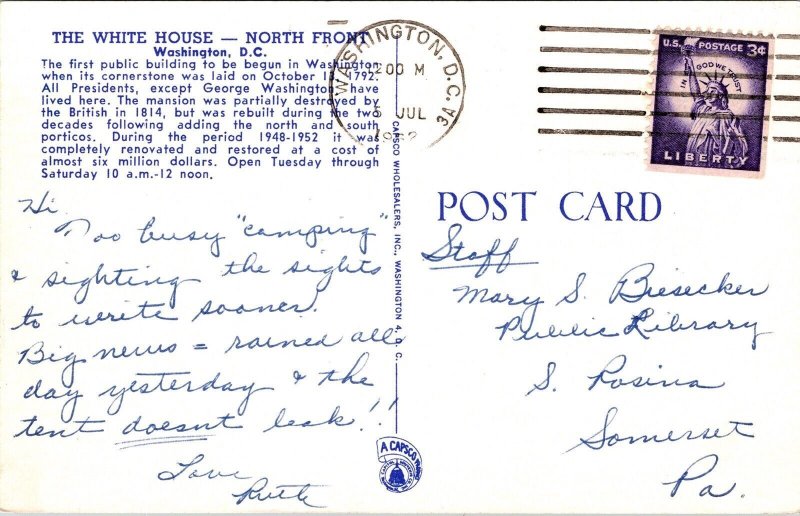 THE WHITE HOUSE — NORTH FRONT
Washington, D.C.
The first public building to be begun in Washington
when its cornerstone was laid on October 1 , 1792.
All Presidents, except George Washington have
lived here. The mansion was partially destroyed by
the British in 1814, but was rebuilt during the two
decades following adding the north and south
porticos. During the period 1948-1952 it was
completely renovated and restored at a cost of
almost six million dollars. Open Tuesday through
Saturday 10 a.m.-12 noon.
WASHINGTON, D.C.
00 M
JUL
U.S. POSTAGE 3¢
IN GOD WE TRUST
LIBERTY
Hi
Too busy "camping"
& sighting the sights
to write sooner.
Big news = rained all
day yesterday & the
tent doesnt leak!!
Love
Ruth
CAPSCO WHOLESALERS, INC., WASHINGTON 4, D. C.
A CAPSCO
POST CARD
Staff
Mary S. Biesecker
Public Library
S. Rosina
Somerset
Pa.